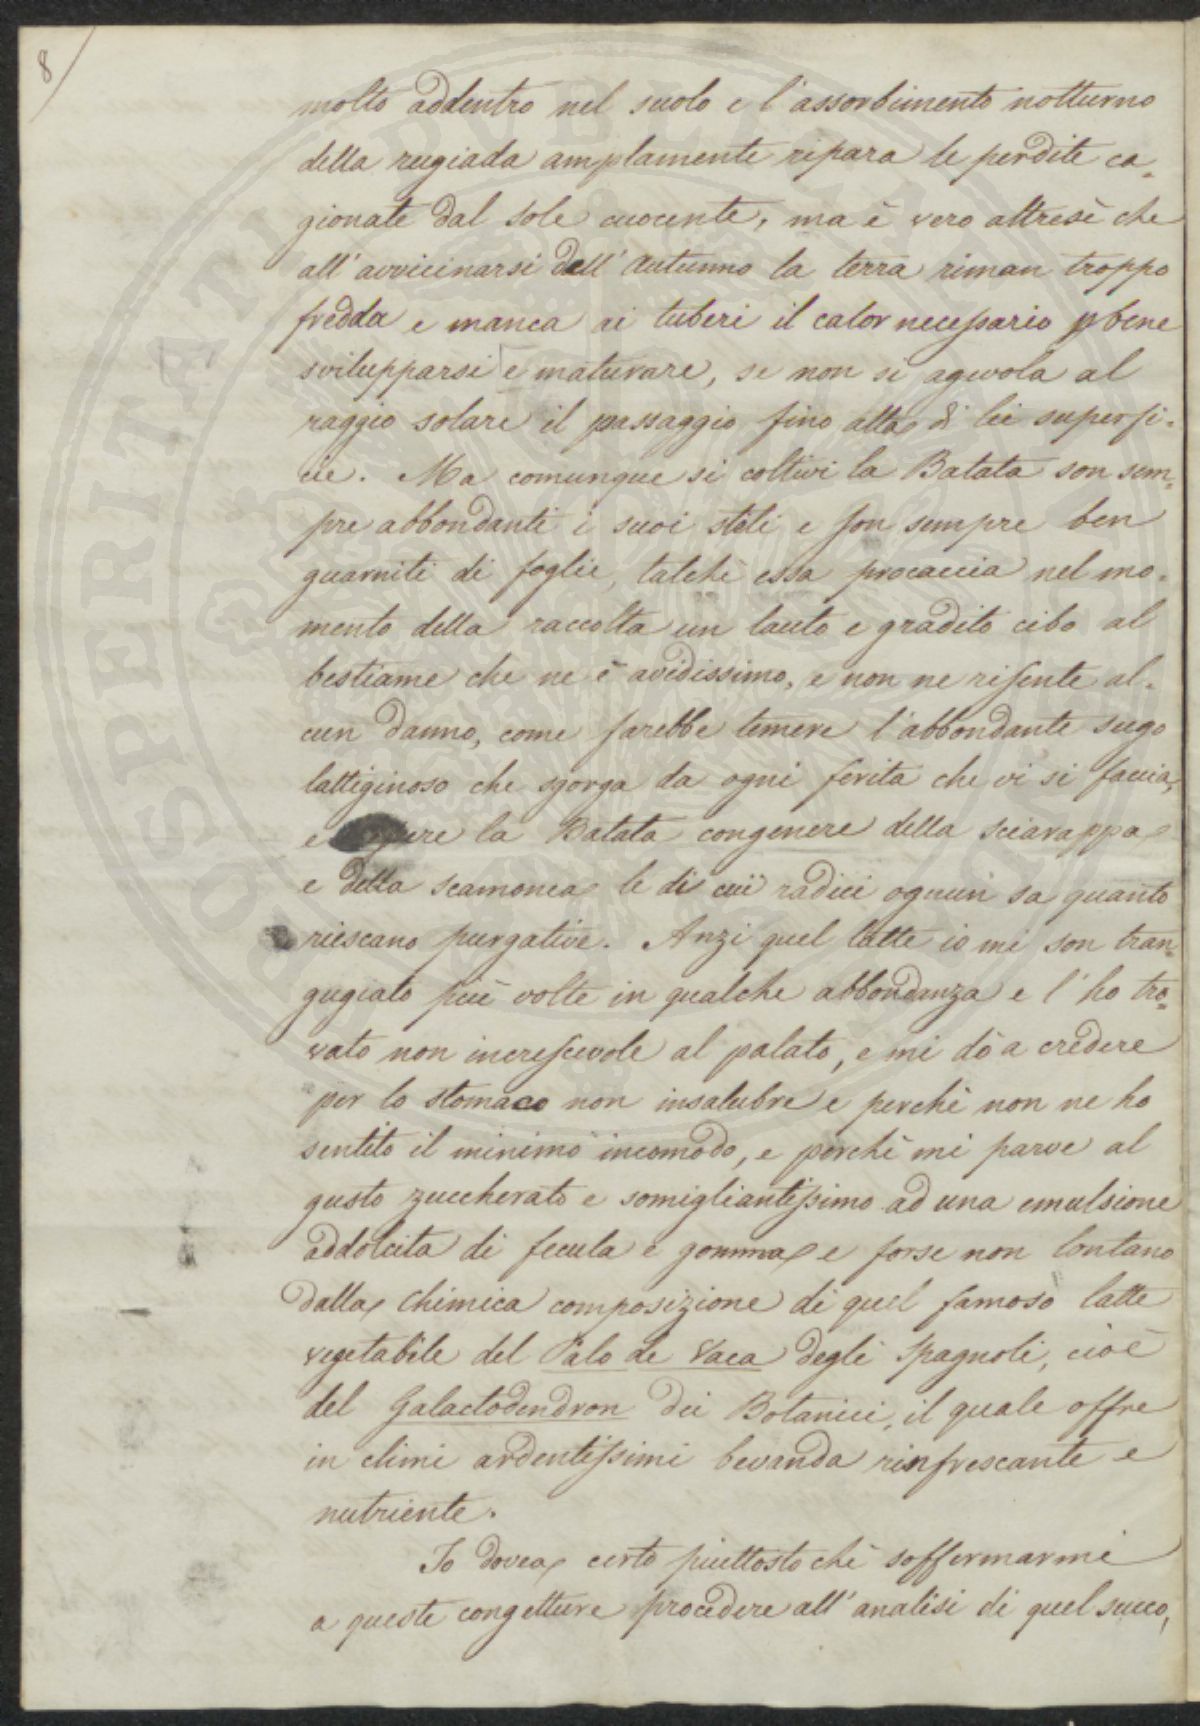 8
molto addentro nel suolo e l'assorbimento notturno
della rugiada amplamente ripara le perdite ca=
gionate dal sole cuocente, ma è vero altresì che
all'avvicinarsi dell'Autunno la terra riman troppo
fredda e manca ai tuberi il calor necessario p bene
svilupparsi e maturare, se non si agevola al
raggio solare il passaggio fino alla di lei superfi=
cie. Ma comunque si coltivi la Batata son sem=
pre abbondanti i suoi steli e son sempre ben
guarniti di foglie, talchè essa procaccia nel mo=
mento della raccolta un lauto e gradito cibo al
bestiame che ne è avidissimo, e non ne risente al=
cun danno, come farebbe temere l'abbondante sugo
lattiginoso che sgorga da ogni ferita che vi si faccia,
e la Batata congenere della sciarappa
e della scamonea le di cui radici ognun sa quanto
riescano purgative. Anzi quel latte io mi son tran=
gugiato più volte in qualche abbondanza e l'ho tro=
vato non increscevole al palato, e mi dò a credere
per lo stomaco non insalubre e perchè non ne ho
sentito il minimo incomodo, e perchè mi parve al
gusto zuccherato e somigliantissimo ad una emulsione
addolcita di fecula e gomma e forse non lontano
dalla chimica composizione di quel famoso latte
vegetabile del Palo de Vaca degli Spagnoli, cioè
del Galactodendron dei Botanici, il quale offre
in climi ardentissimi bevanda rinfrescante e
nutriente.
Io dovea certo piuttosto chè soffermarmi
a queste congetture procedere all'analisi di quel succo,